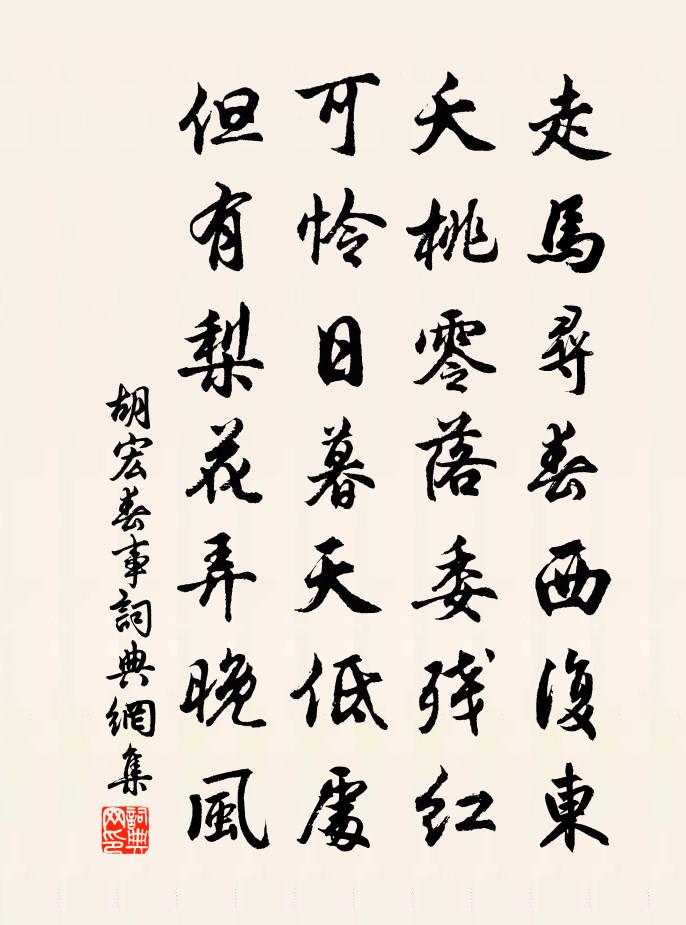 走馬尋春西復東
夭桃零落委残紅
可怜日暮天低處
但有梨花弄晚風
胡宏春事詞典網集
詞典網印